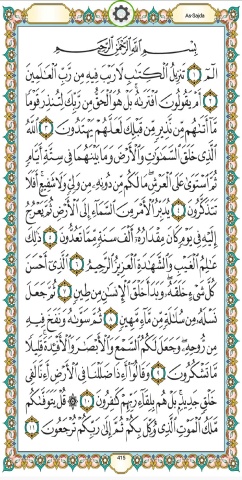 As-Sajda
بِسْمِ ٱللَّهِ ٱلرَّحْمَٰنِ ٱلرَّحِيمِ
الٓمٓ ١ تَنزِيلُ ٱلْكِتَٰبِ لَا رَيْبَ فِيهِ مِن رَّبِّ ٱلْعَٰلَمِينَ
٢ أَمْ يَقُولُونَ ٱفْتَرَىٰهُ بَلْ هُوَ ٱلْحَقُّ مِن رَّبِّكَ لِتُنذِرَ قَوْمًا
مَّآ أَتَىٰهُم مِّن نَّذِيرٍ مِّن قَبْلِكَ لَعَلَّهُمْ يَهْتَدُونَ ٣ ٱللَّهُ
ٱلَّذِى خَلَقَ ٱلسَّمَٰوَٰتِ وَٱلْأَرْضَ وَمَا بَيْنَهُمَا فِى سِتَّةِ أَيَّامٍ
ثُمَّ ٱسْتَوَىٰ عَلَى ٱلْعَرْشِ مَا لَكُم مِّن دُونِهِۦ مِن وَلِىٍّ وَلَا شَفِيعٍ أَفَلَا
تَتَذَكَّرُونَ ٤ يُدَبِّرُ ٱلْأَمْرَ مِنَ ٱلسَّمَآءِ إِلَى ٱلْأَرْضِ ثُمَّ يَعْرُجُ
إِلَيْهِ فِى يَوْمٍ كَانَ مِقْدَارُهُۥٓ أَلْفَ سَنَةٍ مِّمَّا تَعُدُّونَ ٥ ذَٰلِكَ
عَٰلِمُ ٱلْغَيْبِ وَٱلشَّهَٰدَةِ ٱلْعَزِيزُ ٱلرَّحِيمُ ٦ ٱلَّذِىٓ أَحْسَنَ
كُلَّ شَىْءٍ خَلَقَهُۥ وَبَدَأَ خَلْقَ ٱلْإِنسَٰنِ مِن طِينٍ ٧ ثُمَّ جَعَلَ
نَسْلَهُۥ مِن سُلَٰلَةٍ مِّن مَّآءٍ مَّهِينٍ ٨ ثُمَّ سَوَّىٰهُ وَنَفَخَ فِيهِ
مِن رُّوحِهِۦ وَجَعَلَ لَكُمُ ٱلسَّمْعَ وَٱلْأَبْصَٰرَ وَٱلْأَفْـِٔدَةَ قَلِيلًا
مَّا تَشْكُرُونَ ٩ وَقَالُوٓا۟ أَءِذَا ضَلَلْنَا فِى ٱلْأَرْضِ أَءِنَّا لَفِى
خَلْقٍ جَدِيدٍۭ بَلْ هُم بِلِقَآءِ رَبِّهِمْ كَٰفِرُونَ ١٠ ۞ قُلْ يَتَوَفَّىٰكُم
مَّلَكُ ٱلْمَوْتِ ٱلَّذِى وُكِّلَ بِكُمْ ثُمَّ إِلَىٰ رَبِّكُمْ تُرْجَعُونَ ١١
415